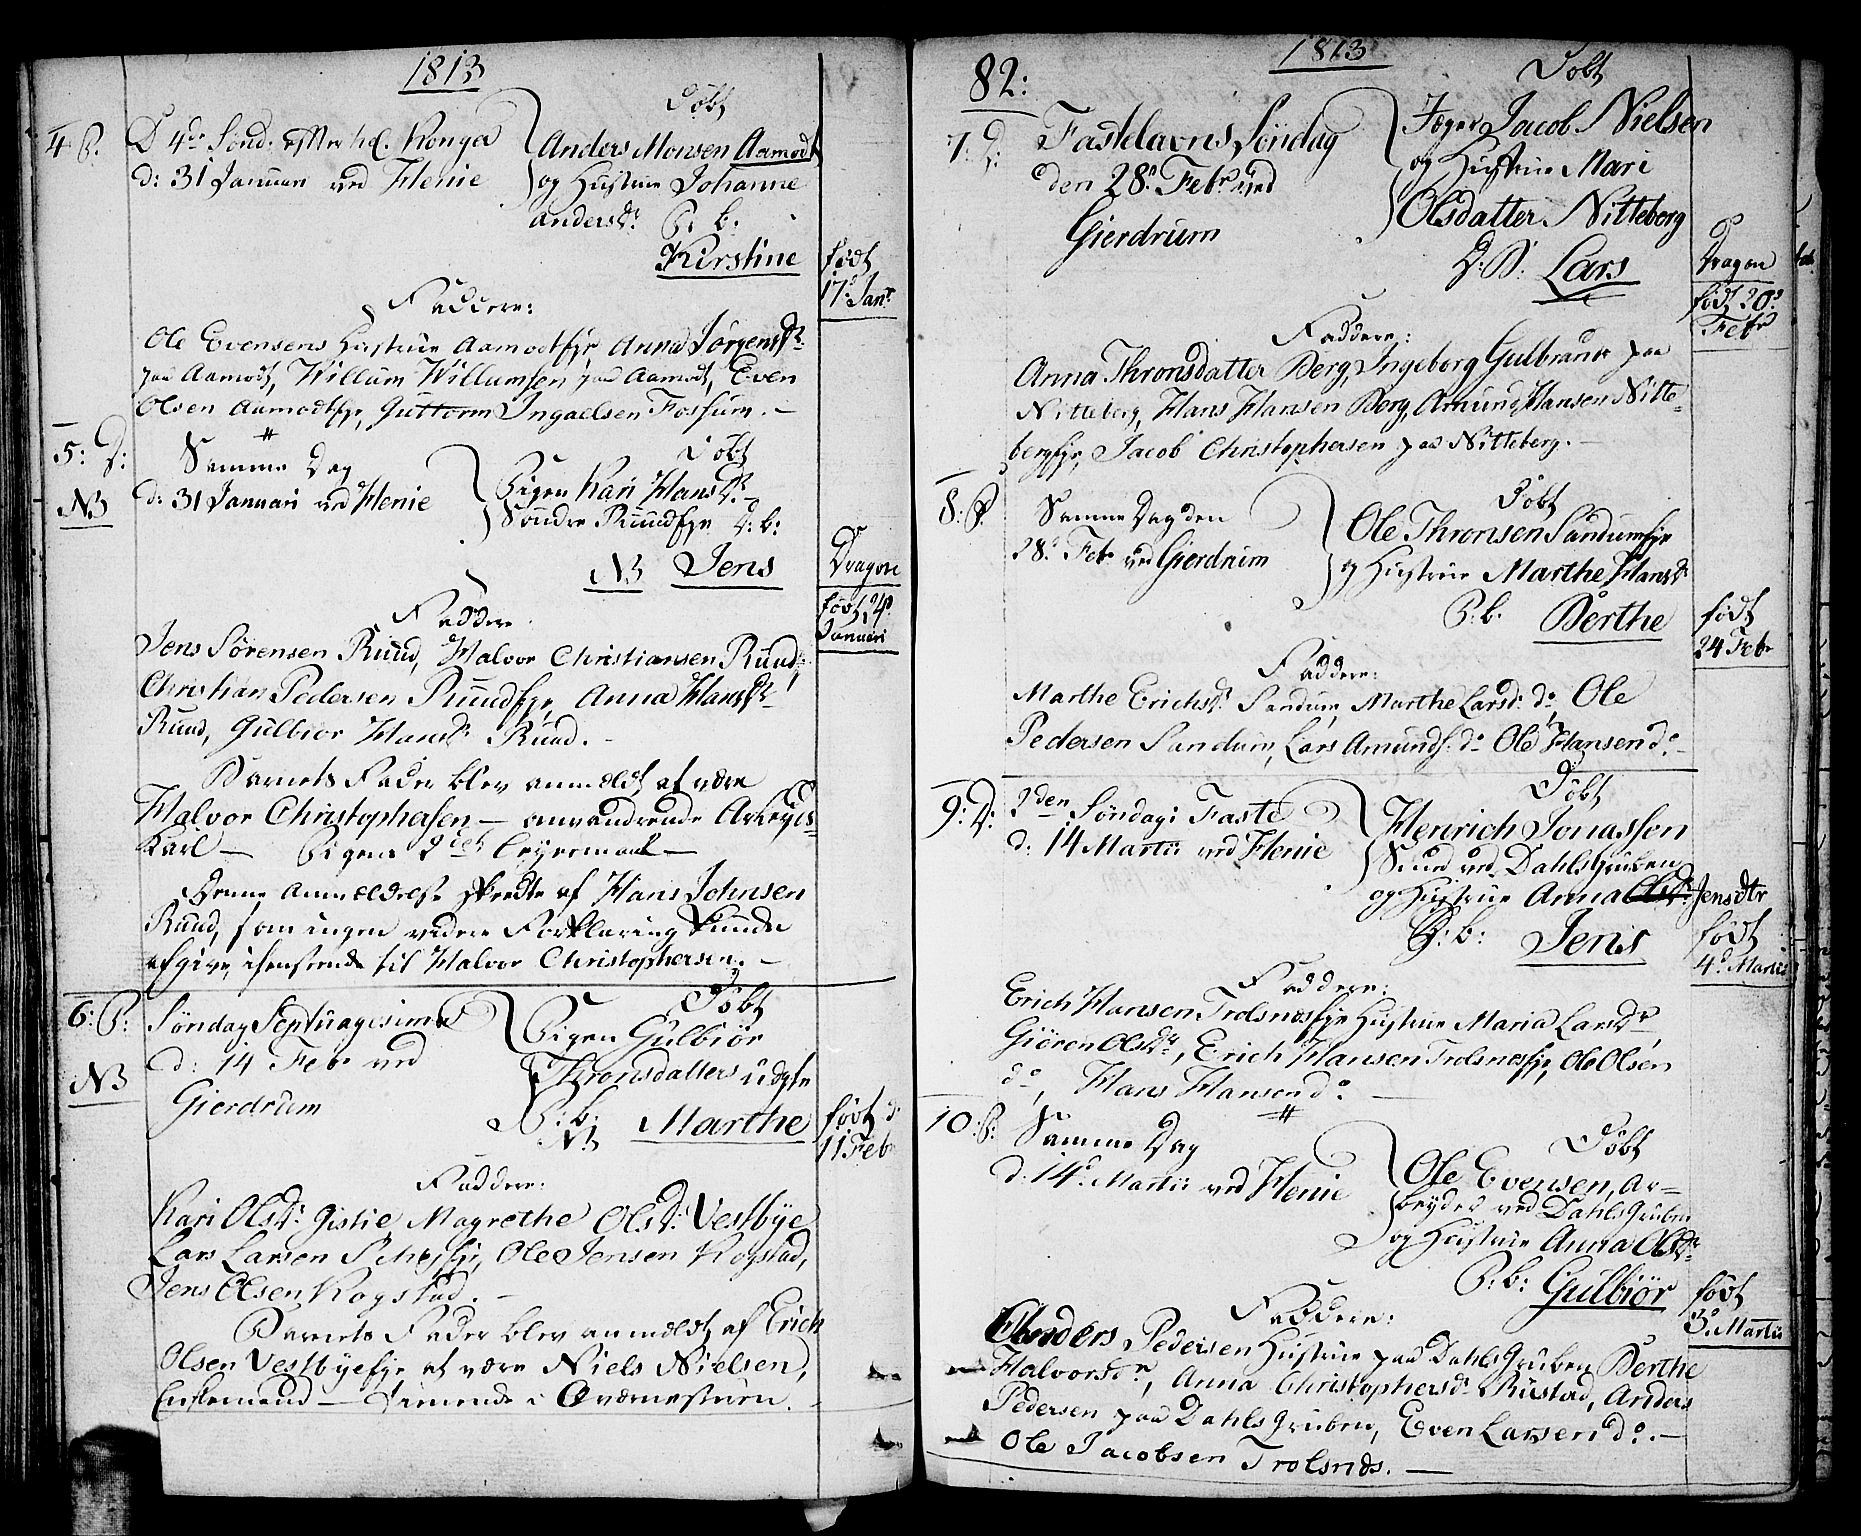 1813
Døbt
4 P. D 4de Sönd. efter hel. 3 Konger
d: 31 Januari ved Henie
Anders Monsen Aamodt
og Hustrue Johanne
Andersdr. P. b:
Kirstine
født
17de Janr
Faddere:
Ole Evensens Hustrue Aamodteje, Anna Jørgensdr.
paa Aamodt, Willum Willumsen paa Aamodt, Even
Olsen Aamodteje, Guttorm Ingaelsen Fossum. –
5: D:
NB
Samme Dag
d: 31 Januari ved Henie
Døbt
Pigen Kari Hansdr.
Søndre Ruudeje D: b:
NB Jens
Dragon
født 24de
Januari
Faddere
Jens Sørensen Ruud, Halvor Christiansen Ruud,
Christian Pedersen Ruudeje, Anna Hansdr.
Ruud, Gulbiør Hansdr. Ruud. –
Barnets Fader blev anmeldt at være
Halvor Christophersen – omvandrende Arbeyds-
Karl – Pigens 2det Leyermaal –
Denne Anmeldelse skeedte af Hans Johnsen
Ruud, som ingen videre Forklaring kunde
afgive, henseende til Halvor Christophersen. –
6: P:
NB
Søndag Septuagesima
d: 14 Febr ved
Gierdrum
Døbt
Pigen Gulbiør
Thronsdatters
P: b: Marthe
NB
født d:
11 Feb
Faddere:
Kari Olsdr. Gistie Magrethe Olsdr. Vestbye
Lars Larsen, Ole Jensen Kogstad,
Jens Olsen Kogstad. –
Barnets Fader blev anmeldt af Erich
Olsen Vestbyeeje at være Niels Nielsen,
Enkemand – tienende i Qværnestuen. –
82:
1813
7. D:
Fastelavns Søndag
den 28de Febr ved
Gierdrum
Døbt
Jæger Jacob Nielsen
og Hustrue Mari
Olsdatter Nitteberg
D: B: Lars
Dragon
født 20de
Febr
Faddere:
Anna Thronsdatter Berg, Ingeborg Gulbrandsdr paa
Nitteberg, Hans Hansen Berg, Amund Hansen Nitte-
bergeje, Jacob Christophersen paa Nitteberg. –
8: P.
Samme Dag den
28de Febr ved Gierdrum
Døbt
Ole Thronsen Sandumeje
og Hustrue Marthe Hansdr
P: b. Berthe
født
24 Febr
Faddere:
Marthe Erichsdr. Sandum, Marthe Larsdr. do, Ole
Pedersen Sandum, Lars Amunds. do Ole Hansen do –
9: D:
2den Søndag i Faste
d: 14 Martii ved Henie
Døbt
Henrich Jonassen
Smed ved Dahls Gruben
og Hustrue Anna Olsdr: Jensdtr
D: b: Jens
født
4de Martii
Faddere:
Erich Hansen Trolsneseje Hustrue Maria Larsdr
Giøren Olsdr, Erich Hansen Trolsneseje, Ole Olsen
do, Hans Hansen do –
10: P:
Samme Dag
d: 14de Martii ved Henie
Døbt
Ole Evensen, Ar-
beyder ved Dahls Gruben
og Hustrue Anna Olsdr
P: b: Gulbiør
født
3de Martii
Faddere:
Anders Pedersen Hustrue paa Dahls Gruben Berthe
Halvorsdr, Anna Christophersdr. Rustad, Anders
Pedersen paa Dahls Gruben, Even Larsen do. –
Ole Jacobsen Trolsnes. –